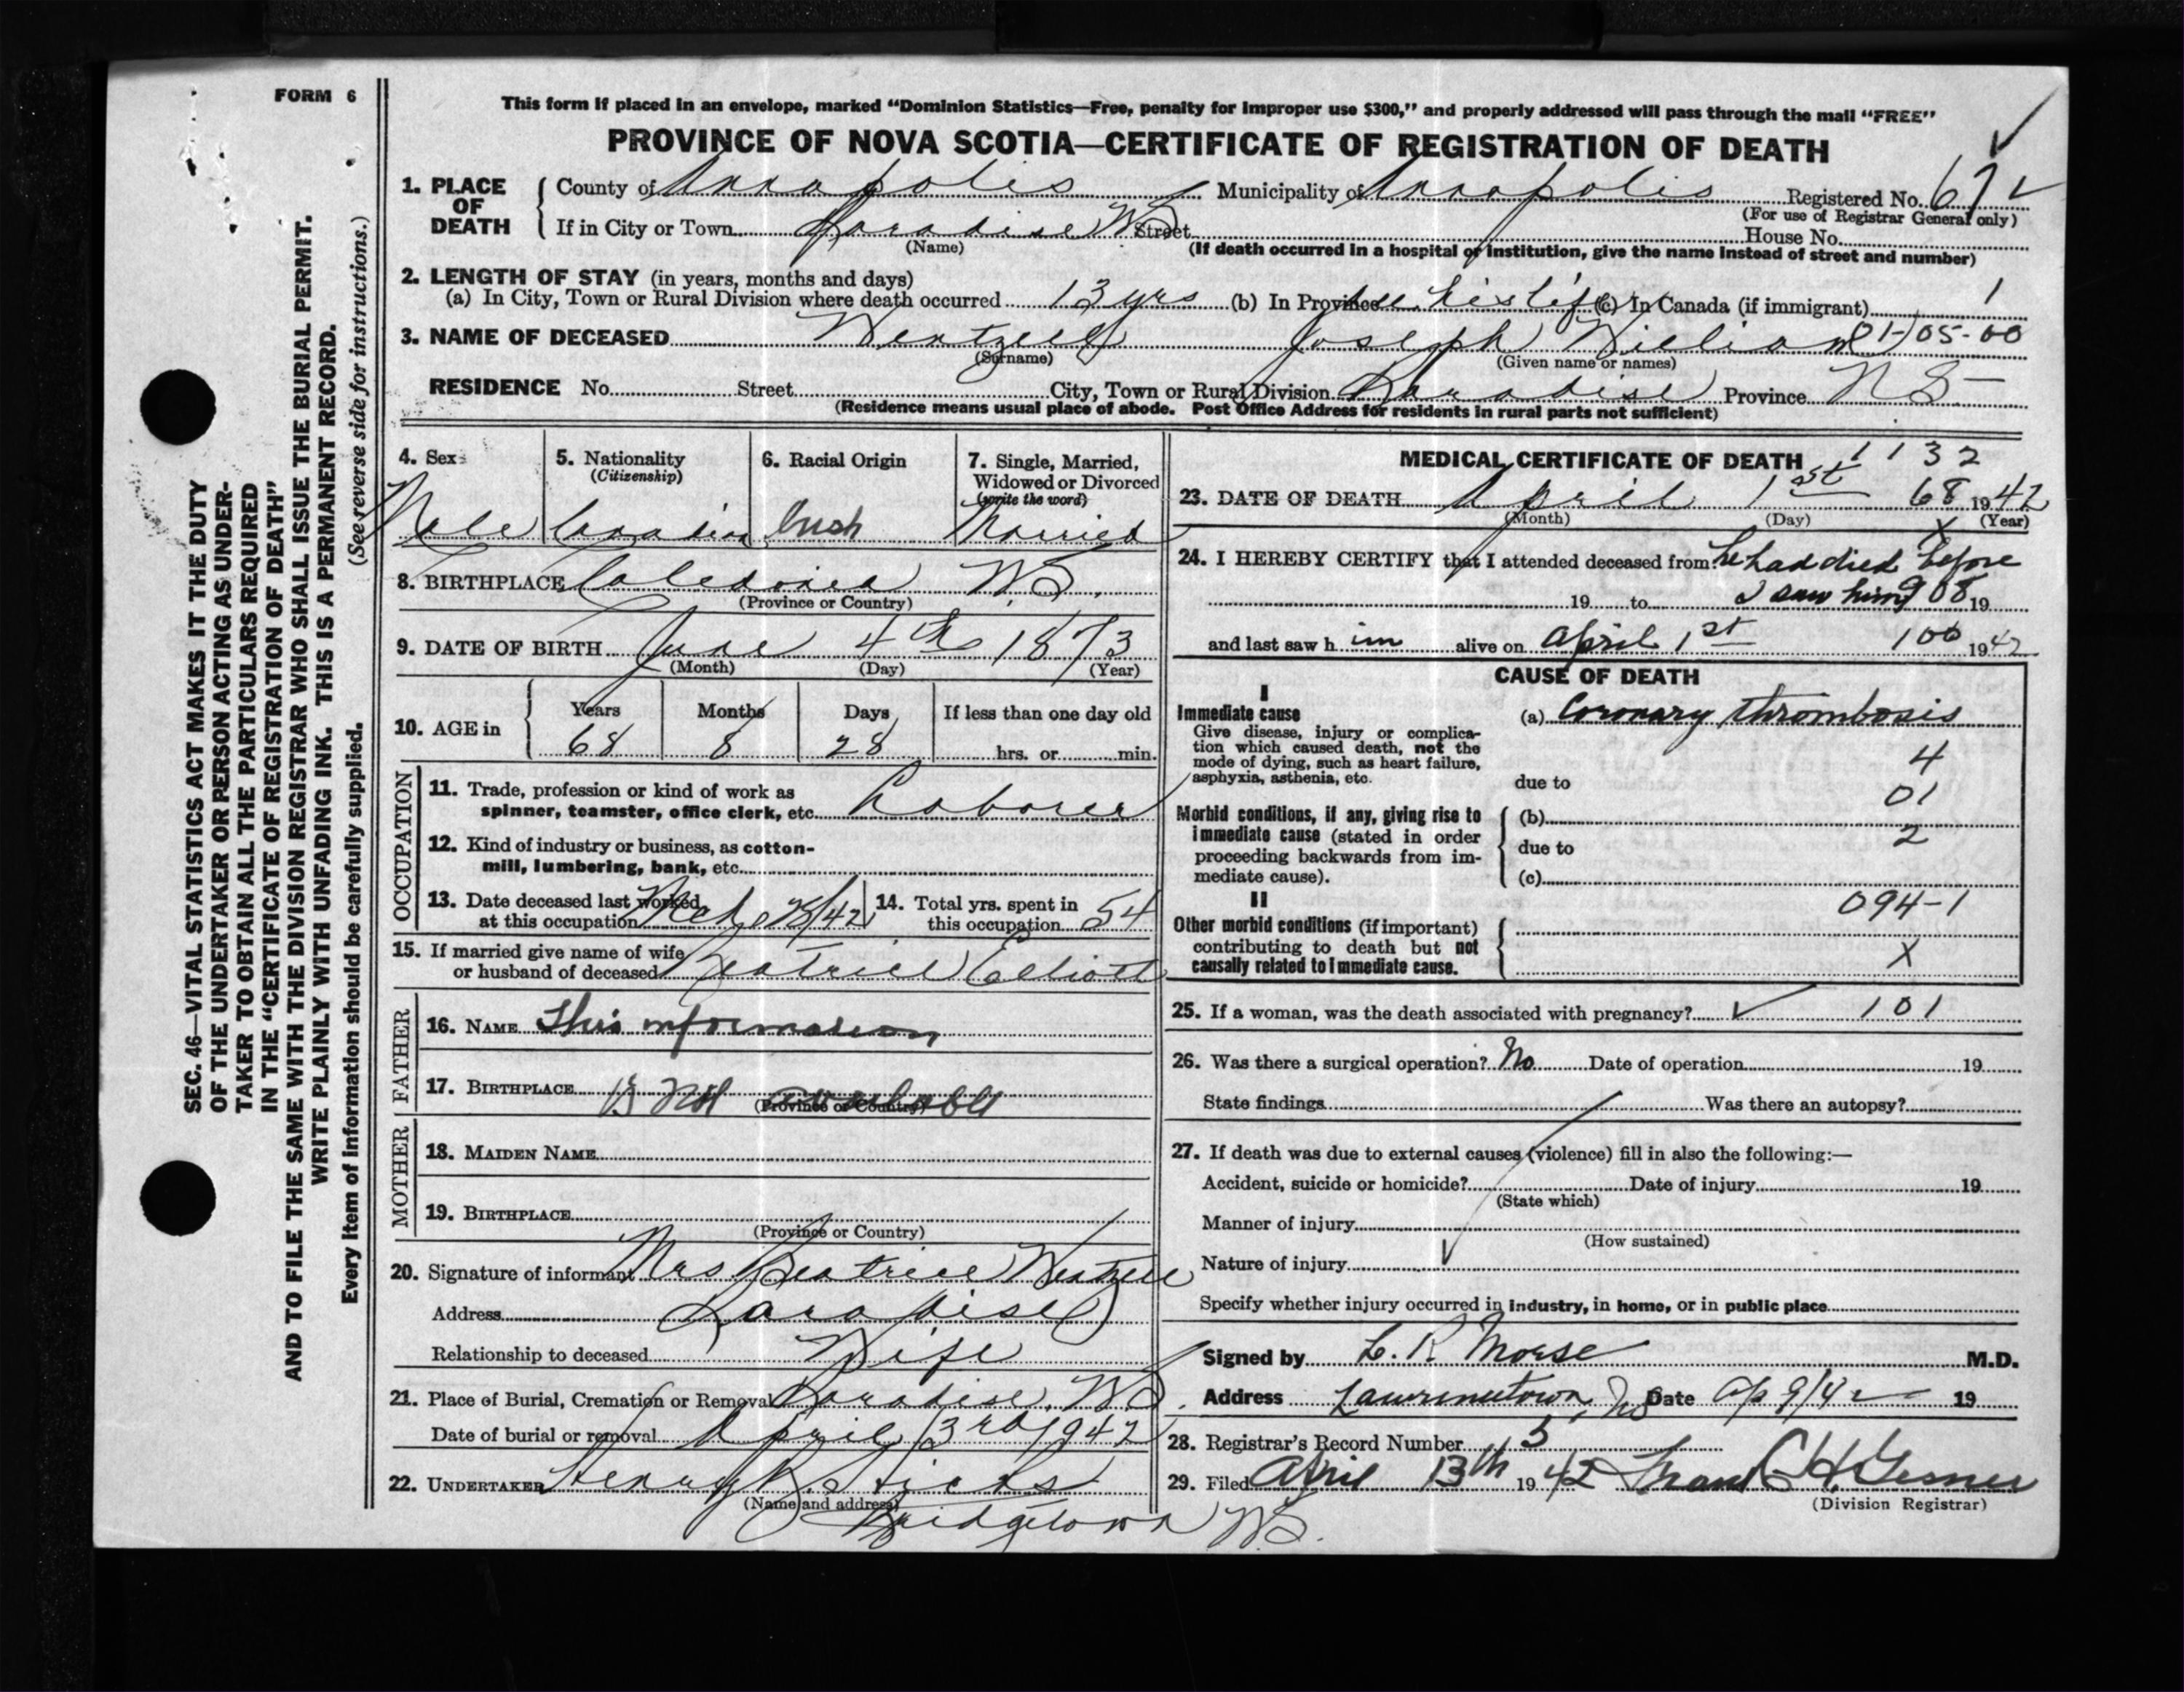 FORM 6
This form if placed in an envelope, marked “Dominion Statistics—Free, penalty for improper use $300,” and properly addressed will pass through the mail “FREE”
PROVINCE OF NOVA SCOTIA—CERTIFICATE OF REGISTRATION OF DEATH
1. PLACE OF DEATH County of Annapolis Municipality of Annapolis Registered No. 67
(For use of Registrar General only)
If in City or Town Paradise NS Street House No.
(Name) (If death occurred in a hospital or institution, give the name instead of street and number)
2. LENGTH OF STAY (in years, months and days) 1
(a) In City, Town or Rural Division where death occurred 13 yrs (b) In Province his life (c) In Canada (if immigrant)
3. NAME OF DECEASED Wentzell Joseph William 01-05-00
(Surname) (Given name or names)
RESIDENCE No. Street City, Town or Rural Division Paradise Province N S
(Residence means usual place of abode. Post Office Address for residents in rural parts not sufficient)
4. Sex 5. Nationality (Citizenship) 6. Racial Origin 7. Single, Married, Widowed or Divorced (write the word)
Male Canadian Married
8. BIRTHPLACE Caledonia N.S.
(Province or Country)
9. DATE OF BIRTH June 4th 1873
(Month) (Day) (Year)
10. AGE in Years Months Days If less than one day old
68 8 28 hrs. or min.
OCCUPATION
11. Trade, profession or kind of work as
spinner, teamster, office clerk, etc. Laborer
12. Kind of industry or business, as cotton-
mill, lumbering, bank, etc.
13. Date deceased last worked 14. Total yrs. spent in
at this occupation Mch 28/42 this occupation 54
15. If married give name of wife
or husband of deceased Beatrice Elliott
FATHER
16. NAME This information
17. BIRTHPLACE is not available
(Province or Country)
MOTHER
18. MAIDEN NAME
19. BIRTHPLACE
(Province or Country)
20. Signature of informant Mrs Beatrice Wentzell
Address Paradise
Relationship to deceased Wife
21. Place of Burial, Cremation or Removal Paradise, N.S.
Date of burial or removal April 3rd 1942
22. UNDERTAKER Henry B. Hicks
(Name and address)
Bridgetown N.S.
MEDICAL CERTIFICATE OF DEATH 1132
23. DATE OF DEATH April 1st 68 1942
(Month) (Day) (Year)
X
24. I HEREBY CERTIFY that I attended deceased from he had died before
19 to I saw him 908 19
and last saw him alive on April 1st 100 1942
CAUSE OF DEATH
I
Immediate cause (a) Coronary thrombosis
Give disease, injury or complica-
tion which caused death, not the 4
mode of dying, such as heart failure,
asphyxia, asthenia, etc. due to
01
Morbid conditions, if any, giving rise to (b)
immediate cause (stated in order 2
proceeding backwards from im- due to
mediate cause). (c)
II 094-1
Other morbid conditions (if important)
contributing to death but not
causally related to immediate cause. X
25. If a woman, was the death associated with pregnancy? 101
26. Was there a surgical operation? No Date of operation 19
State findings Was there an autopsy?
27. If death was due to external causes (violence) fill in also the following:—
Accident, suicide or homicide? Date of injury 19
(State which)
Manner of injury
(How sustained)
Nature of injury
Specify whether injury occurred in industry, in home, or in public place
Signed by L. R. Morse M.D.
Address Lawrencetown, NS Date Ap 9/42 19
28. Registrar's Record Number 5
29. Filed April 13th 1942 H. Gesner
(Division Registrar)
SEC. 46—VITAL STATISTICS ACT MAKES IT THE DUTY
OF THE UNDERTAKER OR PERSON ACTING AS UNDER-
TAKER TO OBTAIN ALL THE PARTICULARS REQUIRED
IN THE “CERTIFICATE OF REGISTRATION OF DEATH”
AND TO FILE THE SAME WITH THE DIVISION REGISTRAR WHO SHALL ISSUE THE BURIAL PERMIT.
WRITE PLAINLY WITH UNFADING INK. THIS IS A PERMANENT RECORD.
Every item of information should be carefully supplied. (See reverse side for instructions.)